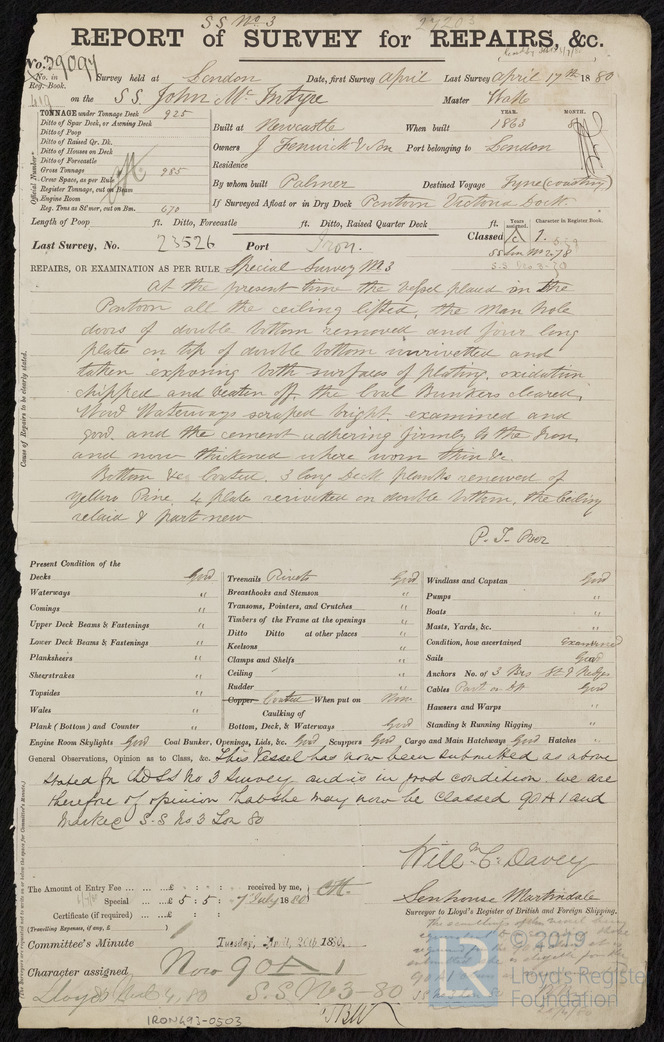 S S No 3
27203
REPORT of SURVEY for REPAIRS, &c.
No. 39094
No. in Reg. Book. Survey held at London Date, first Survey April Last Survey April 17th 1880
419 on the S S. John Mc Intyre Master Watt
TONNAGE under Tonnage Deck 925
Ditto of Spar Deck, or Awning Deck
Ditto of Poop
Ditto of Raised Qr. Dk.
Ditto of Houses on Deck
Ditto of Forecastle
Gross Tonnage 985
Crew Space, as per Rule
Register Tonnage, cut on Beam
Engine Room
Reg. Tons as St'mer, cut on Bm. 670
Official Number
YEAR. MONTH.
Built at Newcastle When built 1863 8
Owners J Fenwick & Son Port belonging to London
Residence
By whom built Palmer Destined Voyage Tyne (coasting)
If Surveyed Afloat or in Dry Dock Pontoon Victoria Dock
Length of Poop ft. Ditto, Forecastle ft. Ditto, Raised Quarter Deck ft.
Years assigned. Character in Register Book.
Last Survey, No. 23526 Port Iron. Classed A 1.
SS Lon No 2,78
S.S. No 3-80
REPAIRS, OR EXAMINATION AS PER RULE Special Survey No 3
Cause of Repairs to be clearly stated.
At the present time the vessel placed in the
Pontoon all the ceiling lifted, the Man hole
doors of double bottom removed and four long
plates on top of double bottom unrivetted and
taken exposing both surfaces of plating. oxidation
chipped and beaten off. the Coal Bunkers cleared,
Wood Waterways scraped bright. examined and
good. and the cement adhering firmly to the Iron,
and now thickened where worn thin &c
Bottom &c Coated. 3 long Deck planks renewed of
Yellow Pine, 4 plate rerivetted on double bottom, the Ceiling
relaid & part new
P. T. Over
Present Condition of the
Decks Good
Waterways "
Comings "
Upper Deck Beams & Fastenings "
Lower Deck Beams & Fastenings "
Planksheers "
Sheerstrakes "
Topsides "
Wales "
Plank (Bottom) and Counter "
Treenails Rivets Good
Breasthooks and Stemson "
Transoms, Pointers, and Crutches "
Timbers of the Frame at the openings "
Ditto Ditto at other places "
Keelsons "
Clamps and Shelfs "
Ceiling "
Rudder "
Copper Coated When put on Now
Caulking of
Bottom, Deck, & Waterways Good
Windlass and Capstan Good
Pumps "
Boats "
Masts, Yards, &c. "
Condition, how ascertained Examined
Sails Good
Anchors No. of 3 Brs St. & Kedges
Cables Good
Hawsers and Warps "
Standing & Running Rigging "
Engine Room Skylights Good Coal Bunker, Openings, Lids, &c. Good Scuppers Good Cargo and Main Hatchways Good Hatches "
General Observations, Opinion as to Class, &c. This Vessel has now been submitted as above
stated for S S No 3 Survey and is in good condition. we are
therefore of opinion that she may now be Classed 90 A 1 and
Marked S. S No 3 Lon 80
Willm C. Davey
The Amount of Entry Fee £ : : received by me,
Special £ 5 : 5 : 7 July 1880
Certificate (if required) :
(Travelling Expenses, if any, £ )
Senhouse Martindale
Surveyor to Lloyd's Register of British and Foreign Shipping.
Committee's Minute Tuesday, April 20th 1880.
Character assigned Now 90 A 1
S.S No 3-80
IRON493-0503
LR
© 2019
Lloyd's Register
Foundation